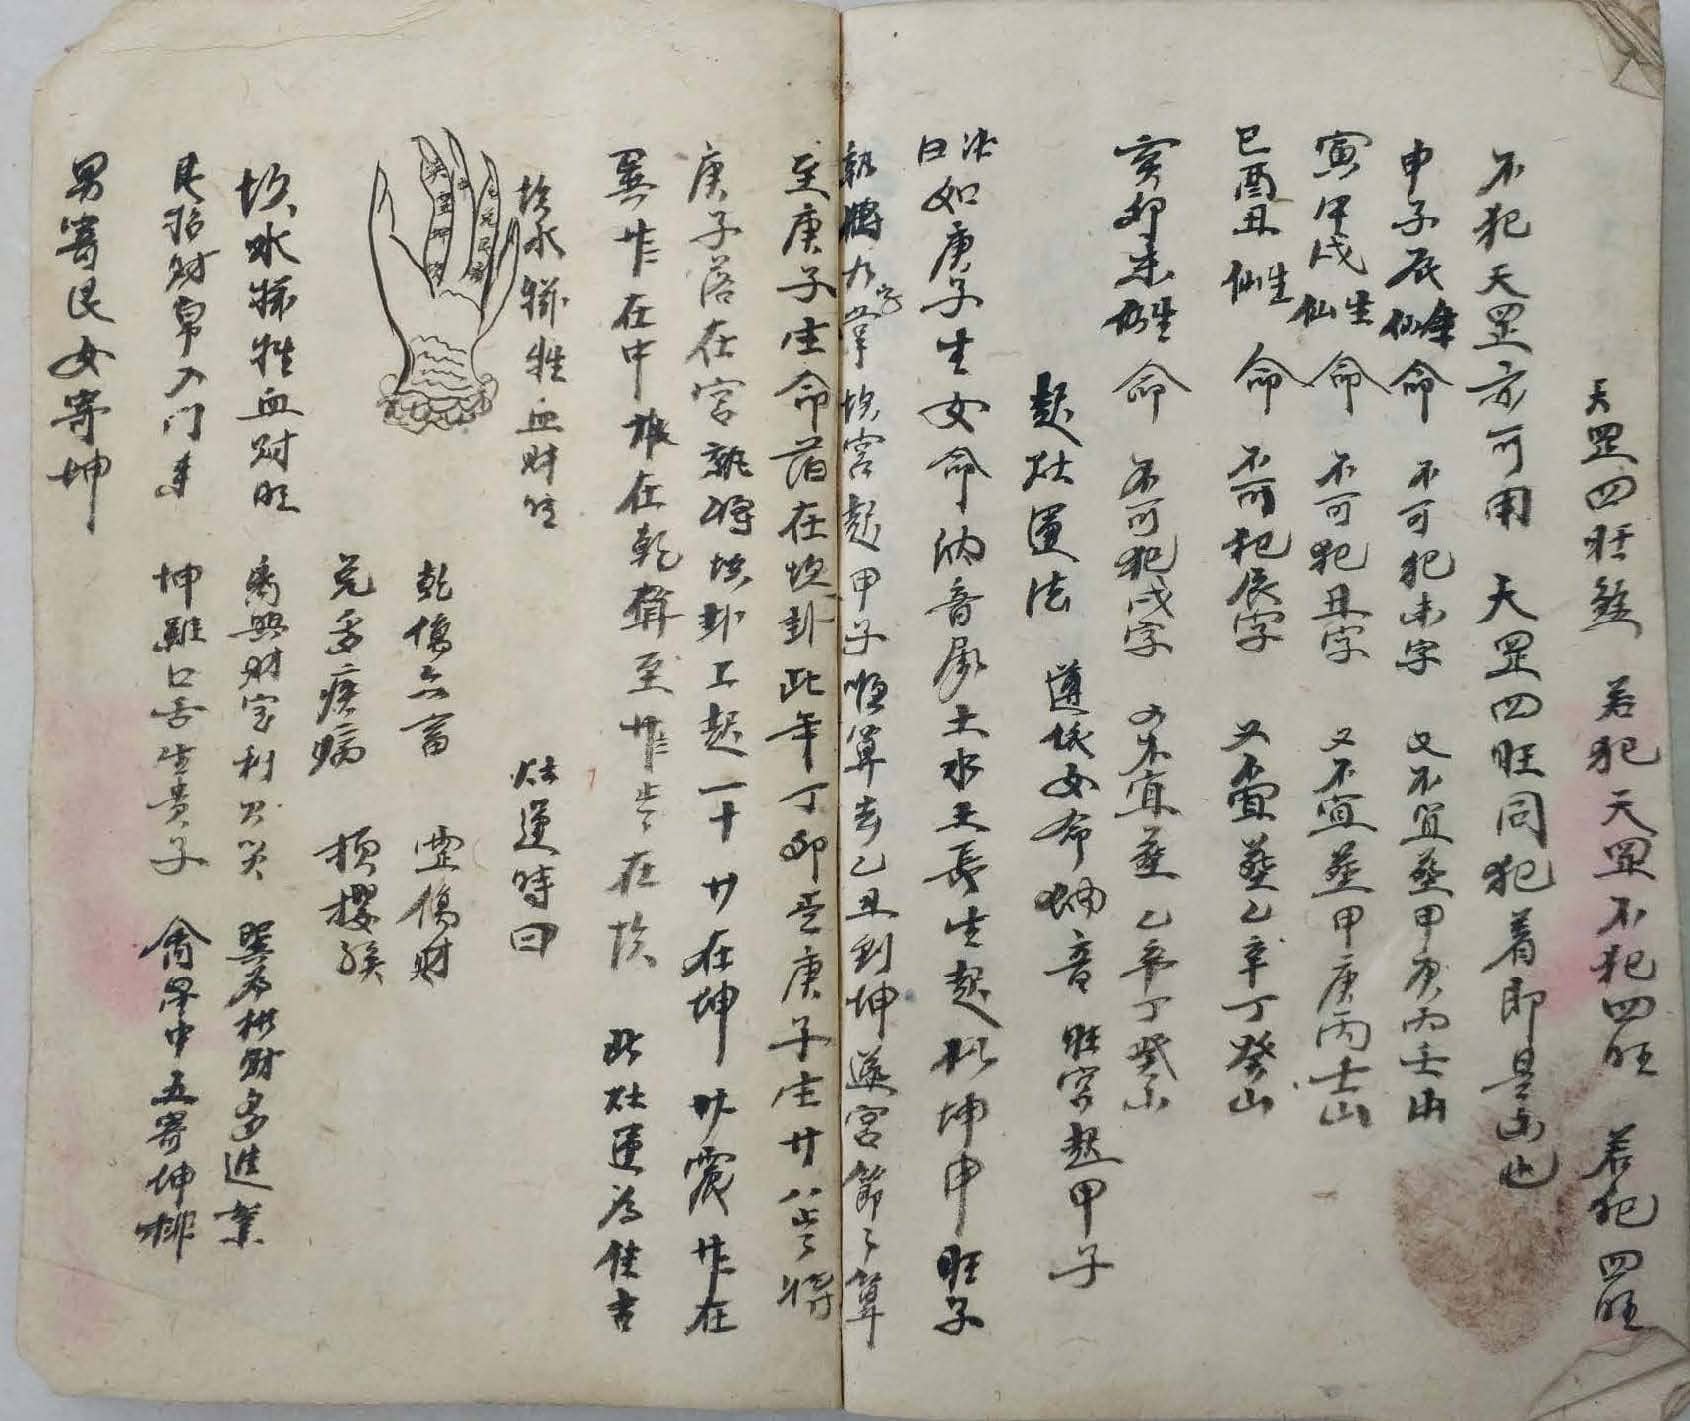 天罡四旺煞 若犯天罡不犯四旺 若犯四旺
不犯天罡亦可用 天罡四旺同犯着即是凶也
申子辰仙命 不可犯未字 又不宜葬甲庚丙壬山
寅午戌仙生命 不可犯丑字 又不宜葬甲庚丙壬山
巳酉丑仙生命 不可犯辰字 又不宜葬乙辛丁癸山
亥卯未仙生命 不可犯戌字 又不宜葬乙辛丁癸山
起灶運法 遵依女命納音 旺宮起甲子
法曰如庚子生女命納音屬土水土長生起於坤申旺子
就將九字五掌坎宮起甲子順算去乙丑到坤逆宮節々算
至庚子生命落在坎卦此年丁卯是庚子生廿八岁々將
庚子落在宮就將坎卦上起一十廿在坤卅震卌在
巽 在中 在乾 至 岁在坎 此灶運為佳吉
坎水 牲血財旺 灶運時曰
乾傷六畜 傷財
兌多疾病 損
坎水 牲血財旺 离興財宝利 巽為 財多進業
艮招財帛入门来 坤雖口舌生貴子 中五寄坤排
男寄艮女寄坤